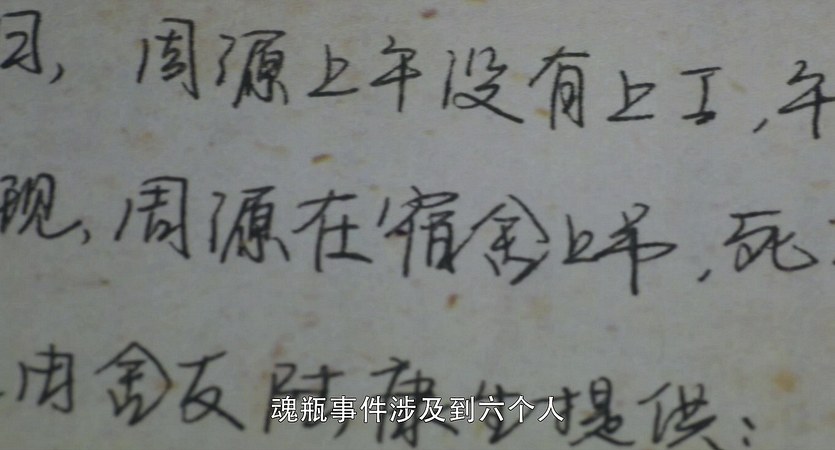 周源上午没有上工,午
现,周源在宿舍上吊,死
由舍友陆康生提供:
魂瓶事件涉及到六个人